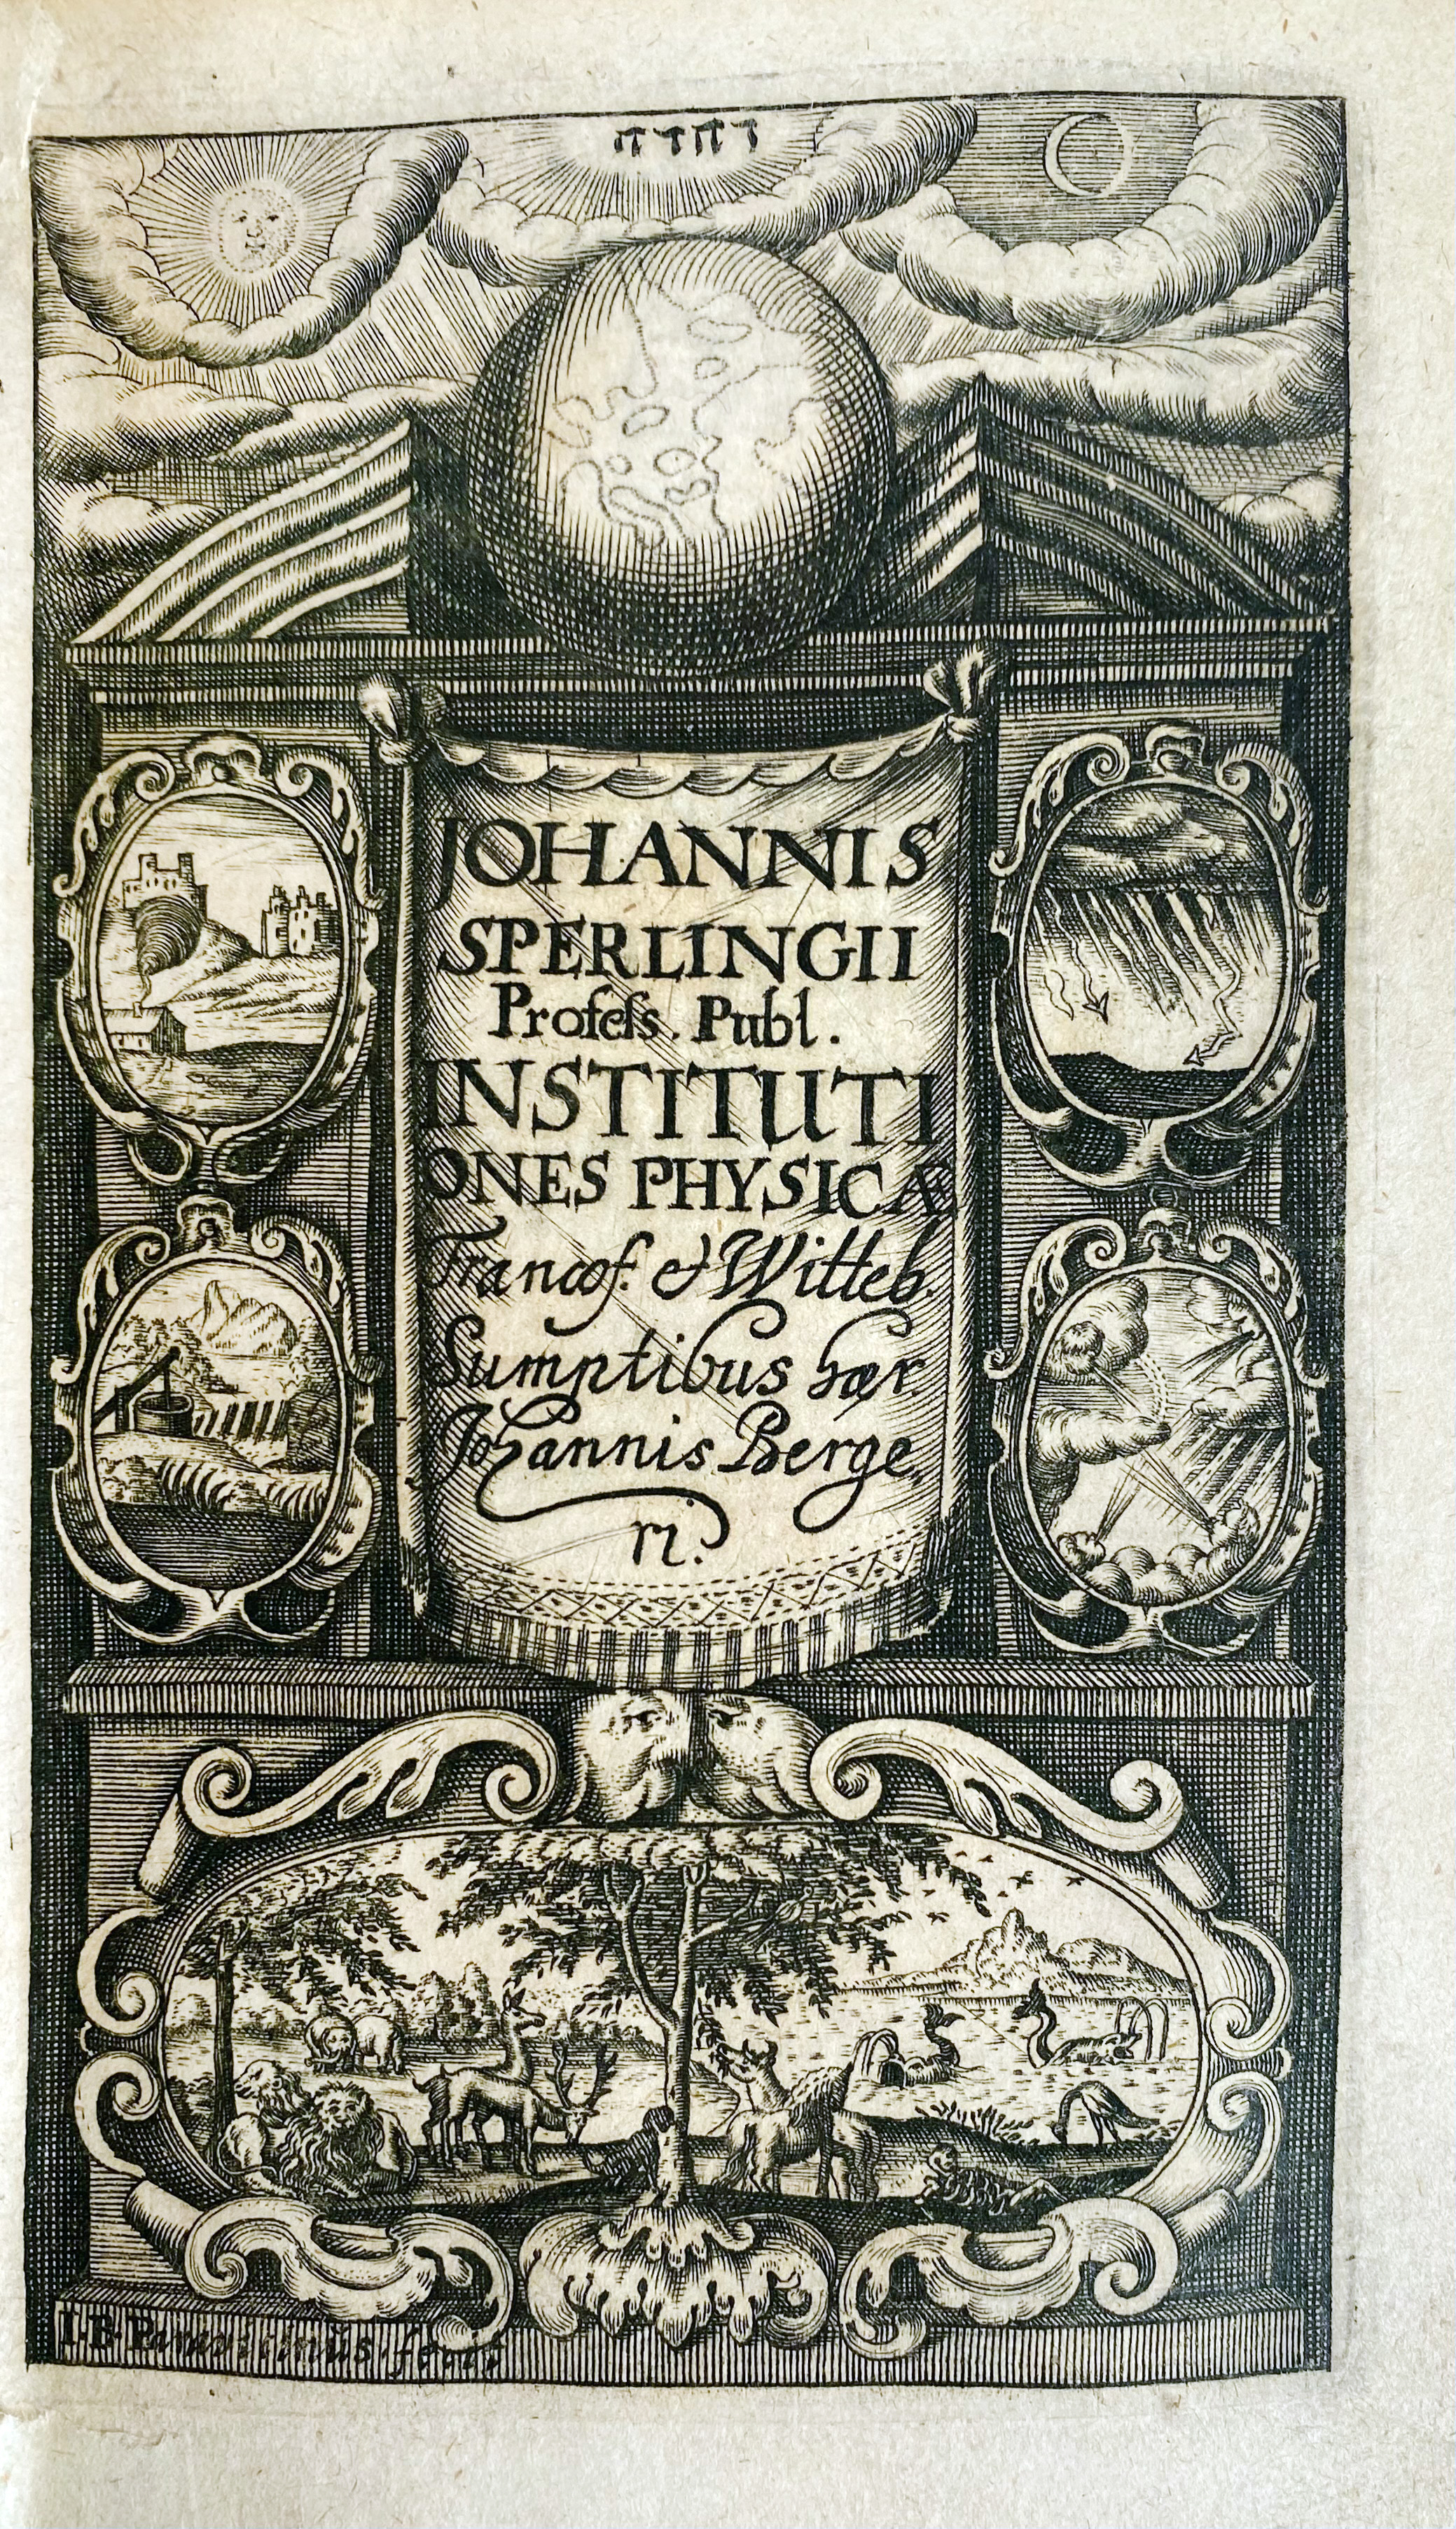 יהוה
JOHANNIS
SPERLINGII
Profeſs. Publ.
INSTITUTI
ONES PHYSICÆ
Francof. & Witteb.
Sumptibus hær.
Johannis Berge,
ri.
I. B. fecit.